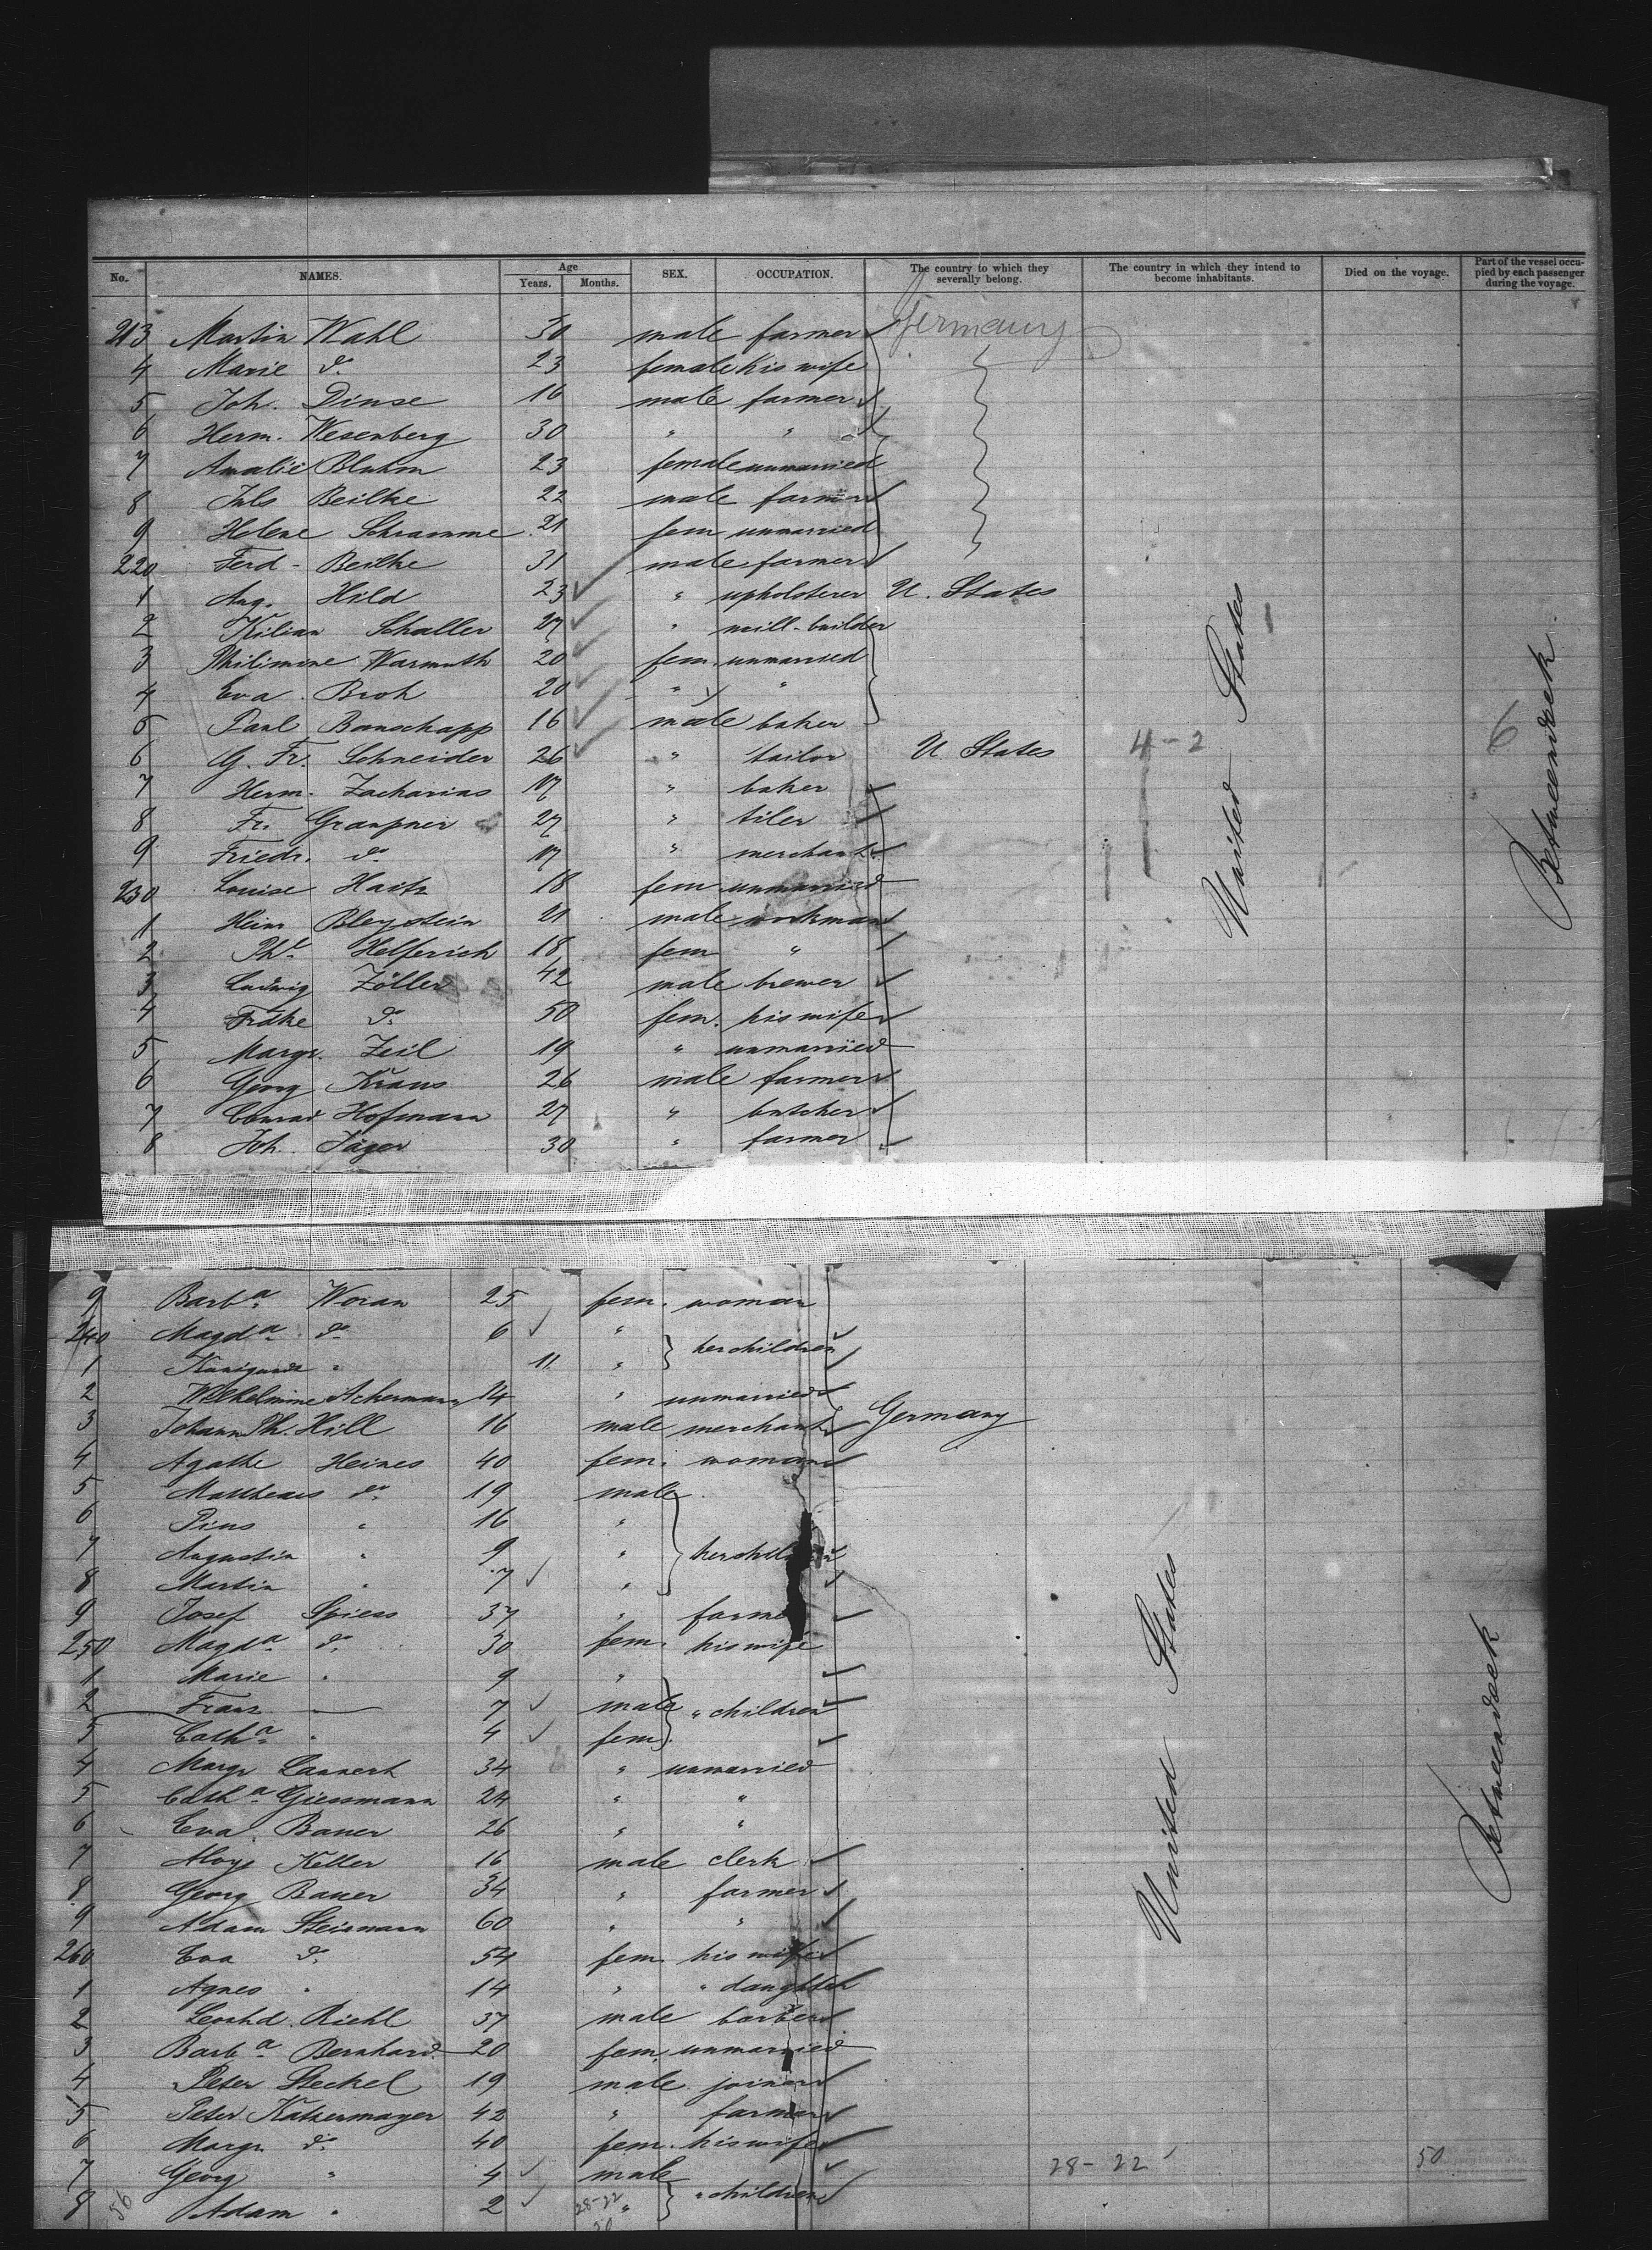 No. NAMES. Age Years. Months. SEX. OCCUPATION. The country to which they severally belong. The country in which they intend to become inhabitants. Died on the voyage. Part of the vessel occupied by each passenger during the voyage.
213 Martin Wahl 30 male farmer Germany
4 Marie do 23 female his wife
5 Joh. Dinse 16 male farmer
6 Herm. Wesenberg 30 " "
7 Amalie Bluhm 23 female unmarried
8 Juls Beilke 22 male farmer
9 Helene Schramme 21 fem unmarried
220 Ferd - Beilke 31 male farmer
1 Aug. Hild 23 " upholsterer U. States
2 Kilian Schaller 27 " mill-builder
3 Philimene Warmuth 20 fem. unmarried
4 Eva Broh 20 " "
5 Paul Banschapp 16 male baker
6 G. Fr. Schneider 26 " tailor U. States 4-2 6
7 Herm. Zacharias 17 " baker
8 Fr. Graupner 27 " tiler
9 Friedr. do 17 " merchant
230 Louise Haitz 18 fem unmarried
1 Heinr Bleystein 21 male workman
2 Ph. Helferich 18 fem "
3 Ludwig Zöller 42 male brewer
4 Frdke do 50 fem. his wife
5 Margr. Zeil 19 " unmarried
6 Georg Kraus 26 male farmer
7 Conrad Hofmann 27 " butcher
8 Joh. Jäger 30 " farmer
United States
Betweendeck
9 Barba Woran 25 fem. woman
240 Magda do 6 " her children
1 Kunigunde " 11 "
2 Wilhelmine Ackermann 14 " unmarried
3 Johann Ph. Hill 16 male merchant Germany
4 Agathe Heines 40 fem. woman
5 Mattheaus do 19 male
6 Pius " 16 "
7 Augustin " 9 " her children
8 Martin " 7 "
9 Josef Spiess 37 " farmer
250 Magda do 30 fem. his wife
1 Marie " 9 "
2 Franz 7 male " children
3 Catha " 4 fem.
4 Margr Lannert 34 " unmarried
5 Catha Giessmann 24 " "
6 Eva Bauer 26 " "
7 Aloys Keller 16 male clerk
8 Georg Bauer 34 " farmer
9 Adam Steinmann 60 " "
260 Eva do 54 fem. his wife
1 Agnes " 14 " " daughter
2 Leonhd. Riehl 37 male barber
3 Barba Bernhard 20 fem. unmarried
4 Peter Steckel 19 male joiner
5 Peter Katzenmayer 42 " farmer
6 Margr. do 40 fem. his wife
7 Georg " 4 male 28-22 50
8 56 Adam " 2 28-22 " " children
50
United States
Betweendeck